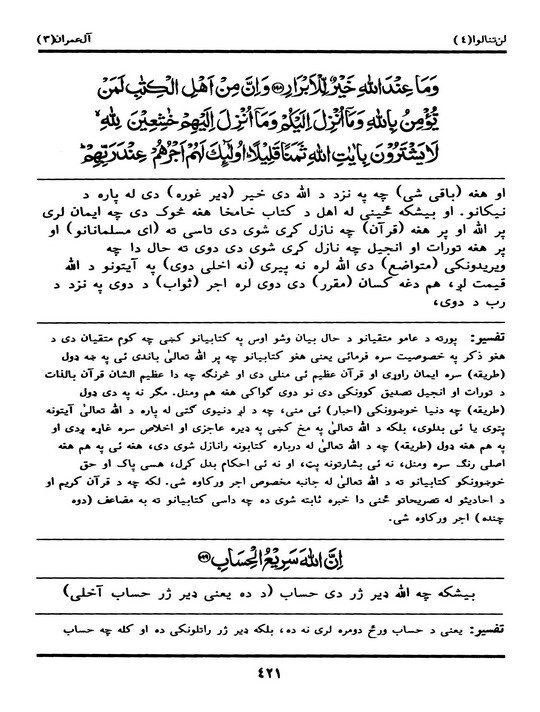 لن تنالوا(٤) آل عمران(٣)
وَمَا عِنْدَ اللّٰهِ خَيْرٌ لِّلْاَبْرَارِ ﴿١٩٨﴾ وَاِنَّ مِنْ اَهْلِ الْكِتٰبِ لَمَنْ
يُّؤْمِنُ بِاللّٰهِ وَمَآ اُنْزِلَ اِلَيْكُمْ وَمَآ اُنْزِلَ اِلَيْهِمْ خٰشِعِيْنَ لِلّٰهِ ۙ
لَا يَشْتَرُوْنَ بِاٰيٰتِ اللّٰهِ ثَمَنًا قَلِيْلًا ؕ اُولٰٓئِكَ لَهُمْ اَجْرُهُمْ عِنْدَ رَبِّهِمْ ؕ
او هغه (باقی شی) چه په نزد د الله دی خیر (ډیر غوره) دی له پاره د
نیکانو. او بیشکه ځینی له اهل د کتاب خامخا هغه څوک دی چه ایمان لری
پر الله او پر هغه (قرآن) چه نازل کړی شوی دی تاسی ته (ای مسلمانانو) او
پر هغه تورات او انجیل چه نازل کړی شوی دی دوی ته حال دا چه
ویریدونکی (متواضع) دی الله لره نه پیری (نه اخلی دوی) په آیتونو د الله
قیمت لږ، هم دغه کسان (مقرر) دی دوی لره اجر (ثواب) د دوی په نزد د
رب د دوی،
تفسیر: پورته د عامو متقیانو د حال بیان وشو اوس په کتابیانو کښی چه کوم متقیان دی د
هغو ذکر په خصوصیت سره فرمائی یعنی هغو کتابیانو چه پر الله تعالیٰ باندی ئی په ښه ډول
(طریقه) سره ایمان راوړی او قرآن عظیم ئی منلی دی او څرنګه چه دا عظیم الشان قرآن بالذات
د تورات او انجیل تصدیق کوونکی دی نو دوی ګواکی هغه هم ومنل. مگر نه په دی ډول
(طریقه) چه دنیا خوښوونکی (احبار) ئی منی، چه د لږ دنیوی ګټی له پاره د الله تعالیٰ آیتونه
پتوی یا ئی بدلوی، بلکه د الله تعالیٰ په مخ کښی په ډیره عاجزی او اخلاص سره غاړه ږدی او
په هم هغه ډول (طریقه) چه د الله تعالیٰ له درباره کتابونه رانازل شوی دی، هغه ئی په هم هغه
اصلی رنګ سره ومنل، نه ئی بشارتونه پټ، او نه ئی احکام بدل کړل، هسی پاک او حق
خوښوونکو کتابیانو ته د الله تعالیٰ له جانبه مخصوص اجر ورکاوه شی. لکه چه د قرآن کریم او
د احادیثو له تصریحاتو ځنی دا خبره ثابته شوی ده چه داسی کتابیانو ته به مضاعف (دوه
چنده) اجر ورکاوه شی.
اِنَّ اللّٰهَ سَرِيْعُ الْحِسَابِ ﴿١٩٩﴾
بیشکه چه الله ډیر ژر دی حساب (د ده یعنی ډیر ژر حساب آخلی)
تفسیر: یعنی د حساب ورځ دومره لری نه ده، بلکه ډیر ژر راتلونکی ده او کله چه حساب
٤٢١